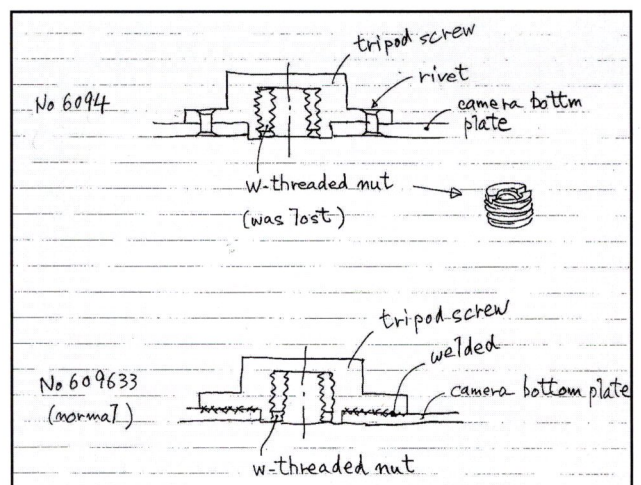 tripod screw
rivet
No 6094
camera bottm
plate
w-threaded nut
(was lost)
tripod screw
welded
No 609633
(normal)
camera bottom plate
w-threaded nut